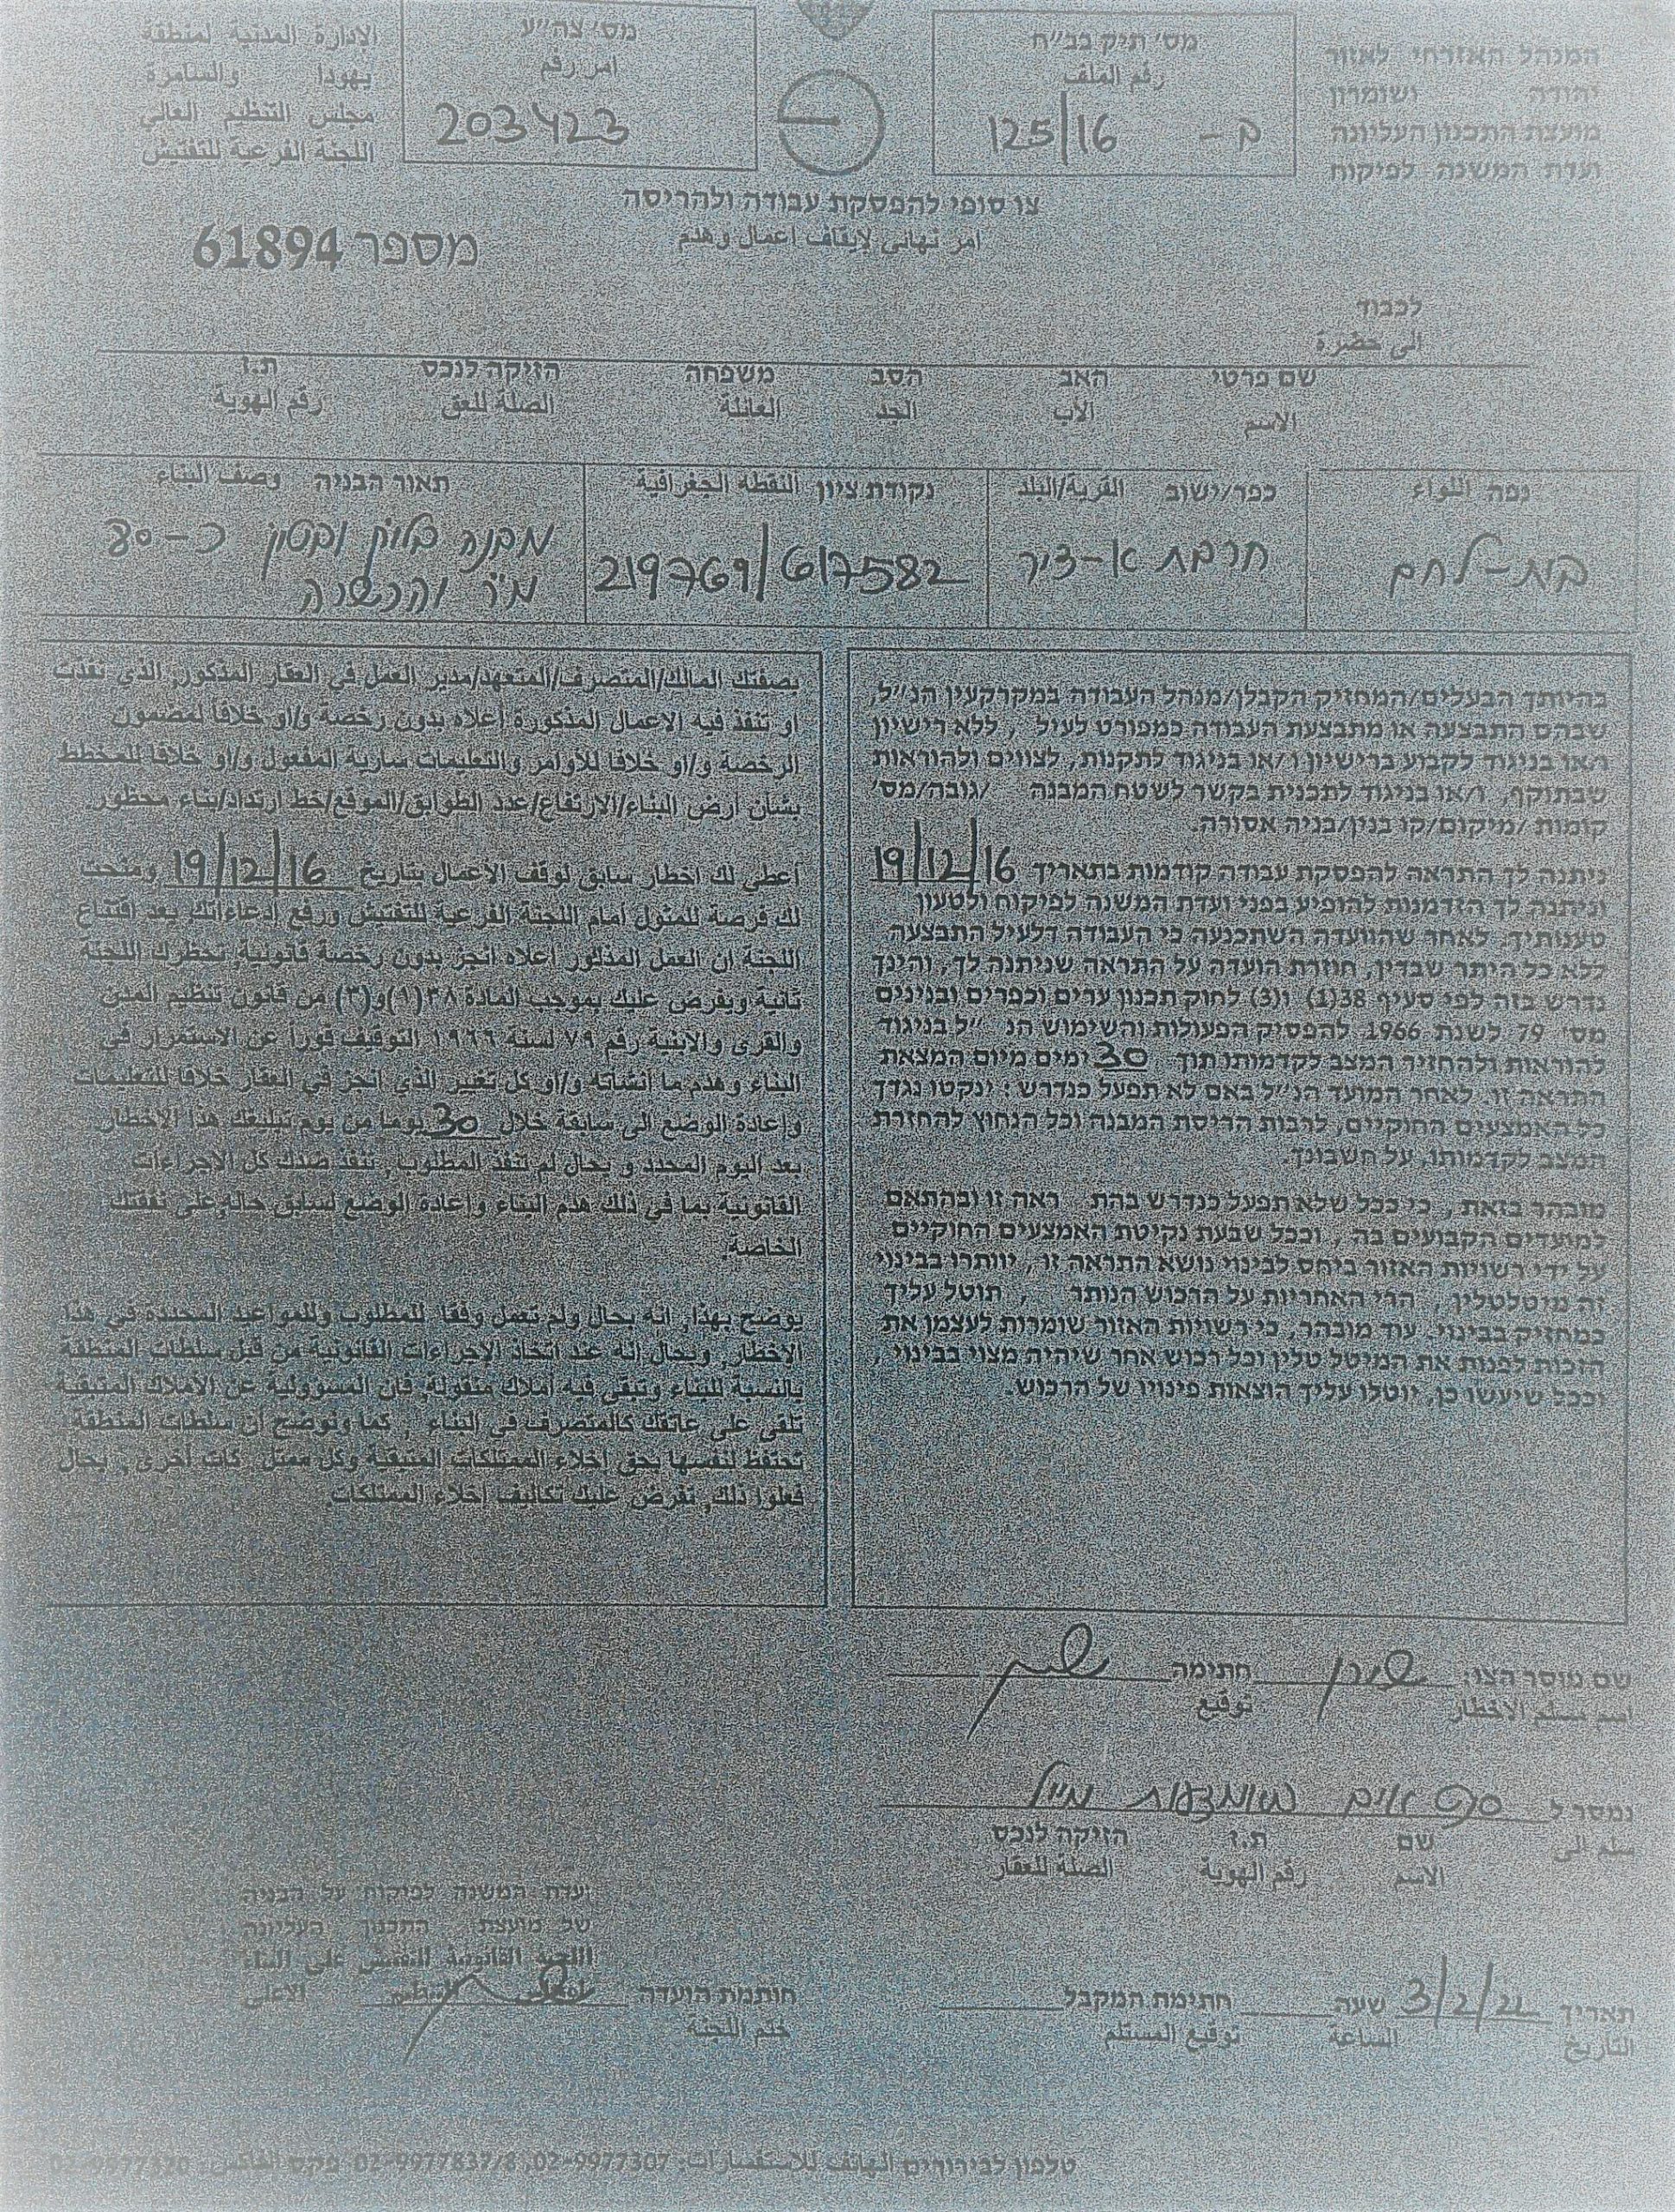 המנהל האזרחי לאזור
יהודה ושומרון
מועצת התכנון העליונה
ועדת המשנה לפיקוח
מס׳ תיק בב״ח
رقم الملف
ב- 125/16
מס׳ צה״ע
امر رقم
203423
الإدارة المدنية لمنطقة
يهودا والسامرة
مجلس التنظيم العالي
اللجنة الفرعية للتفتيش
צו סופי להפסקת עבודה ולהריסה
امر نهائي لإيقاف اعمال وهدم
מספר 61894
לכבוד
الى حضرة
שם פרטי האב הסב משפחה הזיקה לנכס ת.ז
الاسم الأب الجد العائلة الصلة للعق رقم الهوية
נפה اللواء
בית-לחם
כפר/ישוב القرية/البلد
חרבת א-דיר
נקודת ציון النقطة الجغرافية
219769/617582
תאור הבניה وصف البناء
מבנה בלוק ובטון כ-80
מ״ר והכשרה
בהיותך הבעלים/המחזיק הקבלן/מנהל העבודה במקרקעין הנ״ל,
שבהם התבצעה או מתבצעת העבודה כמפורט לעיל , ללא רישיון
ו/או בניגוד לקבוע ברישיון ו/או בניגוד לתקנות, לצווים ולהוראות
שבתוקף, ו/או בניגוד לתכנית בקשר לשטח המבנה /גובה/מס׳
קומות /מיקום/קו בנין/בניה אסורה.
ניתנה לך התראה להפסקת עבודה קודמות בתאריך 19/12/16
וניתנה לך הזדמנות להופיע בפני ועדת המשנה לפיקוח ולטעון
טענותיך. לאחר שהוועדה השתכנעה כי העבודה דלעיל התבצעה
ללא כל היתר שבדין, חוזרת הועדה על התראה שניתנה לך, והינך
נדרש בזה לפי סעיף 38(1) ו(3) לחוק תכנון ערים וכפרים ובנינים
מס׳ 79 לשנת 1966 להפסיק הפעולות והשימוש הנ ״ל בניגוד
להוראות ולהחזיר המצב לקדמותו תוך 30 ימים מיום המצאת
התראה זו. לאחר המועד הנ״ל באם לא תפעל כנדרש : ינקטו נגדך
כל האמצעים החוקיים, לרבות הריסת המבנה וכל הנחוץ להחזרת
המצב לקדמותו, על חשבונך.
מובהר בזאת , כי ככל שלא תפעל כנדרש בהת ראה זו ובהתאם
למועדים הקבועים בה , וככל שבעת נקיטת האמצעים החוקיים
על ידי רשויות האזור ביחס לבינוי נושא התראה זו , יוותרו בבינוי
זה מיטלטלין , הרי האחריות על הרכוש הנותר , תוטל עליך
כמחזיק בבינוי. עוד מובהר, כי רשויות האזור שומרות לעצמן את
הזכות לפנות את המיטל טלין וכל רכוש אחר שיהיה מצוי בבינוי ,
וככל שיעשו כן, יוטלו עליך הוצאות פינויו של הרכוש.
بصفتك المالك/المتصرف/المتعهد/مدير العمل في العقار المذكور, الذي نفذت
او تنفذ فيه الاعمال المذكورة اعلاه بدون رخصة و/او خلافا لمضمون
الرخصة و/او خلافا للأوامر والتعليمات سارية المفعول و/او خلافا للمخطط
بشأن ارض البناء/الارتفاع/عدد الطوابق/الموقع/خط ارتداد/بناء محظور.
أعطي لك اخطار سابق لوقف الأعمال بتاريخ 19/12/16 ومنحت
لك فرصة للمثول امام اللجنة الفرعية للتفتيش ورفع إدعاءاتك بعد اقتناع
اللجنة ان العمل المذكور اعلاه انجز بدون رخصة قانونية, تخطرك اللجنة
ثانية ويفرض عليك بموجب المادة ٣٨(١)و(٣) من قانون تنظيم المدن
والقرى والابنية رقم ٧٩ لسنة ١٩٦٦ التوقيف فورا عن الاستمرار في
البناء وهدم ما إنشاته و/او كل تغيير الذي انجز في العقار خلافا للتعليمات
وإعادة الوضع الى سابقة خلال 30 يوما من يوم تبليغك هذا الاخطار.
بعد اليوم المحدد و بحال لم تنفذ المطلوب, تنفذ ضدك كل الاجراءات
القانونية بما في ذلك هدم البناء وإعادة الوضع لسابق حاله, على نفقتك
الخاصة.
يوضح بهذا, انه بحال ولم تعمل وفقا للمطلوب وللمواعيد المحددة في هذا
الإخطار, وبحال إنه عند اتخاذ الاجراءات القانونية من قبل سلطات المنطقة
بالنسبة للبناء وتبقى فيه أملاك منقولة, فان المسؤولية عن الأملاك المتبقية
تلقى على عاتقك كالمتصرف في البناء , كما ونوضح أن سلطات المنطقة
تحتفظ لنفسها بحق اخلاء الممتلكات المتبقية وكل ممتل كات أخرى , بحال
فعلوا ذلك, تفرض عليك تكاليف اخلاء الممتلكات.
שם מוסר הצו: חתימה
اسم مسلم الاخطار توقيع
נמסר ל
سلم الى
שם ת.ז הזיקה לנכס
الاسم رقم الهوية الصلة للعقار
ועדת המשנה לפיקוח על הבניה
של מועצת התכנון העליונה
اللجنة القانونية للتفتيش على البناء
التنظيم الاعلى
תאריך 3/2/21 שעה חתימת המקבל חותמת הועדה
التاريخ الساعة توقيع المستلم ختم اللجنة
טלפון לבירורים الهاتف للاستفسارات: 02-9977307, 02-9977837/8 פקס الفاكس: